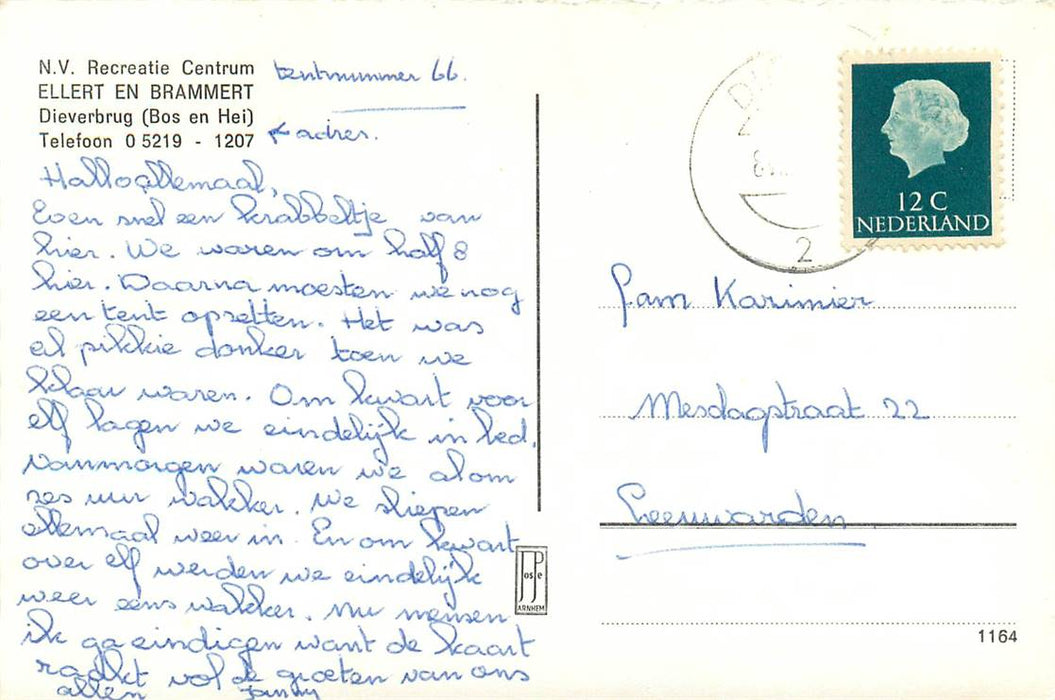 N.V. Recreatie Centrum
ELLERT EN BRAMMERT
Dieverbrug (Bos en Hei)
Telefoon 0 5219 - 1207
tentnummer 66.
adres.
Hallo allemaal,
Even snel een krabbeltje van
hier. We waren om half 8
hier. Daarna moesten we nog
een tent opzetten. Het was
al pikkie donker toen we
klaar waren. Om kwart voor
elf lagen we eindelijk in bed.
Vanmorgen waren we al om
zes uur wakker. We sliepen
allemaal weer in. En om kwart
over elf werden we eindelijk
weer eens wakker. Nu mensen
ik ga eindigen want de kaart
raakt vol de groeten van ons
allen
12 C
NEDERLAND
2
Fam Karimier
Mesdagstraat 22
Leeuwarden
JosPé
ARNHEM
1164